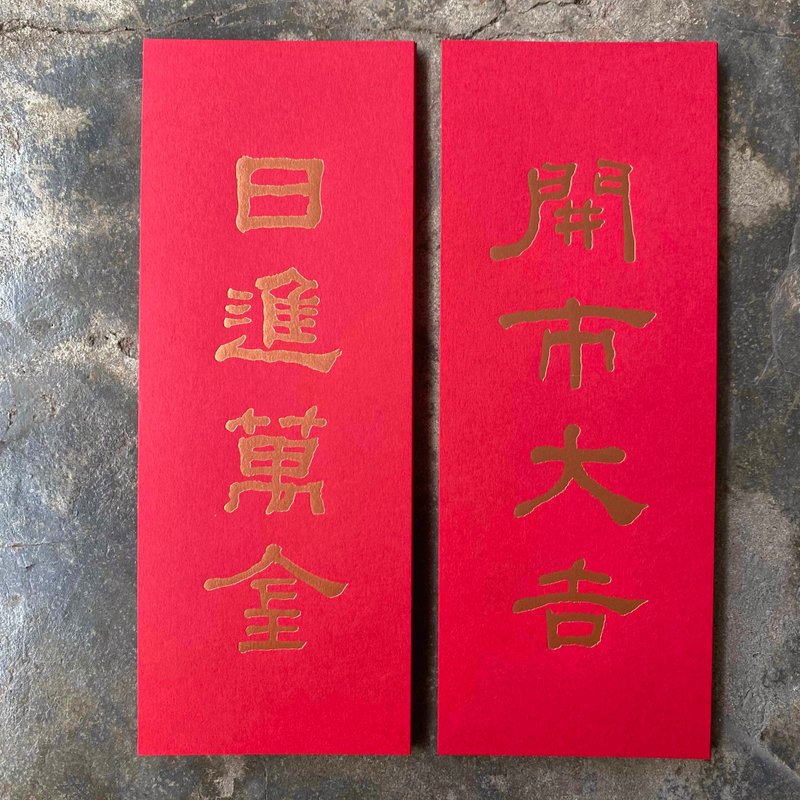 開市大吉
日進萬金